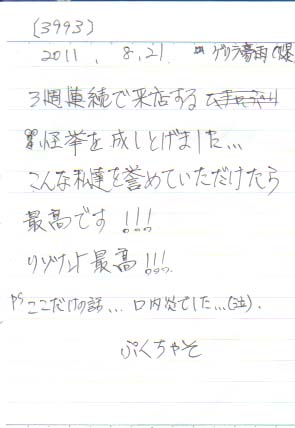 (3993)
2011. 8.21. ゲリラ豪雨(爆
3週連続で来店する
怪挙を成しとげました…
こんな私達を誉めていただけたら
最高です!!!
リゾナント最高!!!
PS ここだけの話… 口内炎でした…(泣).
ぷくちゃそ